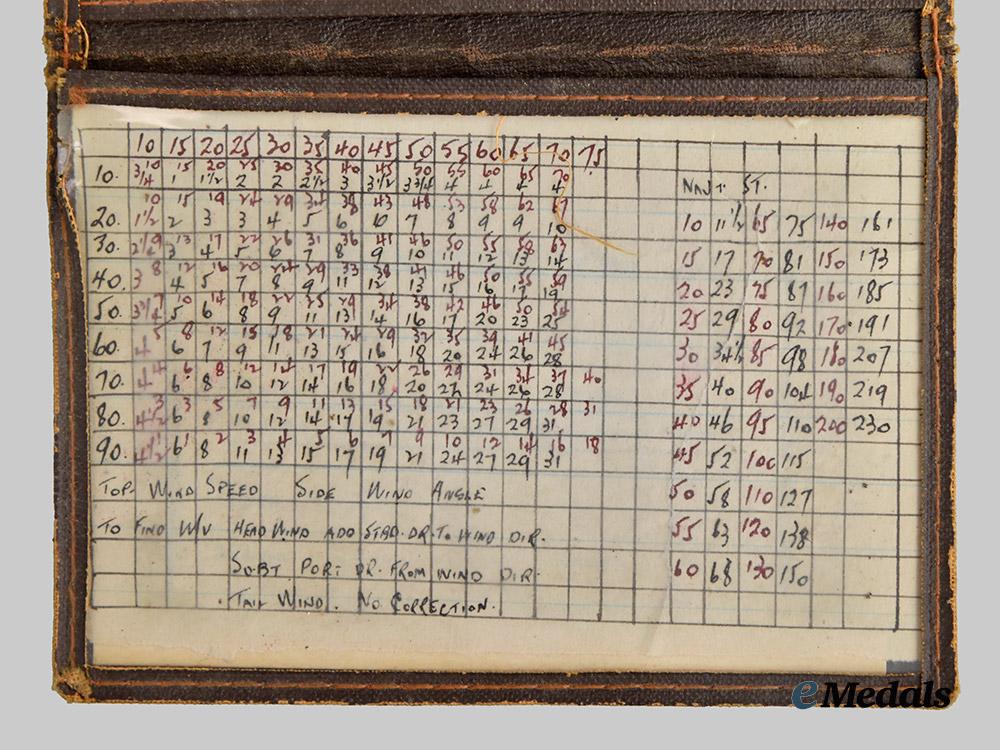 10 15 20 25 30 35 40 45 50 55 60 65 70 75
10. 10 15 20 25 30 35 40 45 50 55 60 65 70
3/4 1 1½ 2 2 2½ 3 3½ 3¾ 4 4 4 4
10 15 19 24 29 34 38 43 48 53 58 62 67
20. 1½ 2 3 3 4 5 6 6 7 8 9 9 10
9 13 17 22 26 31 36 41 46 50 55 58 63
30. 3 4 5 6 7 8 9 10 11 12 13 14
8 12 16 20 24 29 33 38 41 46 50 55 59
40. 3 4 5 7 8 9 11 12 13 15 16 17 19
7 10 14 18 22 25 29 34 38 42 46 50 54
50. 3¾ 5 6 8 9 11 13 14 16 17 20 23 25
5 8 12 15 18 21 24 29 32 35 39 41 45
60. 4 6 7 9 11 13 15 16 18 20 24 26 28
4 6 8 12 14 17 19 22 26 29 31 34 37 40
70. 4 6 8 10 12 14 16 18 20 22 24 26 28
3 3 5 7 9 11 13 15 18 21 23 26 28 31
80. 4½ 6 8 10 12 14 17 19 21 23 27 29 31
1 2 3 4 5 6 7 9 10 12 14 16 18
90. 4½ 6 8 11 13 15 17 19 21 24 27 29 31
TOP WIND SPEED SIDE WIND ANGLE
TO FIND W/V HEAD WIND ADD STBD. DR. TO WIND DIR.
SUBT PORT DR. FROM WIND DIR.
TAIL WIND. NO CORRECTION.
NAUT. ST.
10 11½ 65 75 140 161
15 17 70 81 150 173
20 23 75 87 160 185
25 29 80 92 170 191
30 34½ 85 98 180 207
35 40 90 104 190 219
40 46 95 110 200 230
45 52 100 115
50 58 110 127
55 63 120 138
60 68 130 150
eMedals